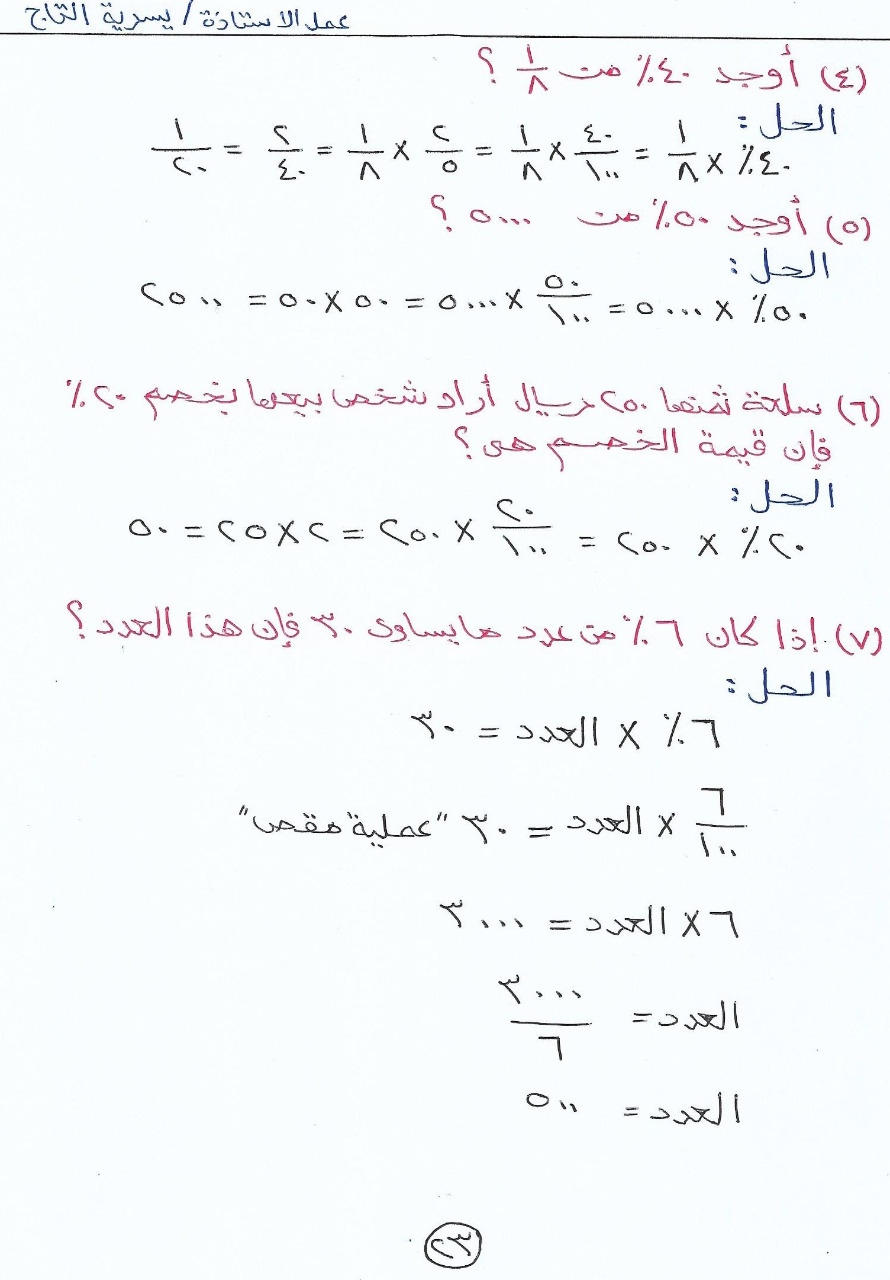 عمل الاستاذة / يسرية التاج
(٤) أوجد ٤٠٪ من ١/٨ ؟
الحل :
٤٠٪ × ١/٨ = ٤٠/١٠٠ × ١/٨ = ٢/٥ × ١/٨ = ٢/٤٠ = ١/٢٠
(٥) أوجد ٥٠٪ من ٥٠٠٠ ؟
الحل :
٥٠٪ × ٥٠٠٠ = ٥٠/١٠٠ × ٥٠٠٠ = ٥٠ × ٥٠ = ٢٥٠٠
(٦) سلعة ثمنها ٢٥٠ ريال أراد شخص بيعها بخصم ٢٠٪
فإن قيمة الخصم هى ؟
الحل :
٢٠٪ × ٢٥٠ = ٢٠/١٠٠ × ٢٥٠ = ٢ × ٢٥ = ٥٠
(٧) إذا كان ٦٪ من عدد ما يساوى ٣٠ فإن هذا العدد ؟
الحل :
٦٪ × العدد = ٣٠
٦/١٠٠ × العدد = ٣٠ "عملية مقص"
٦ × العدد = ٣٠٠٠
العدد = ٣٠٠٠/٦
العدد = ٥٠٠
٢٣